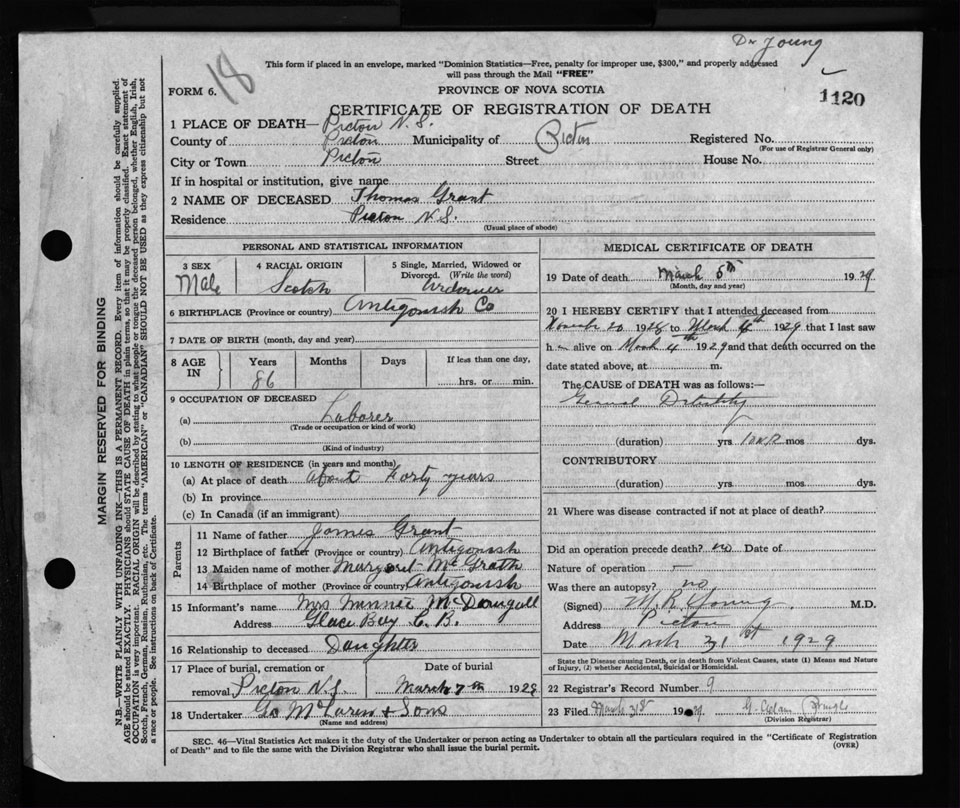 Dr Young
This form if placed in an envelope, marked "Dominion Statistics—Free, penalty for improper use, $300," and properly addressed
will pass through the Mail "FREE"
18
FORM 6.
PROVINCE OF NOVA SCOTIA
1120
CERTIFICATE OF REGISTRATION OF DEATH
1 PLACE OF DEATH— Picton N.S.
County of Picton Municipality of Picton Registered No.
(For use of Registrar General only)
City or Town Picton Street House No.
If in hospital or institution, give name
2 NAME OF DECEASED Thomas Grant
Residence Picton N.S.
(Usual place of abode)
PERSONAL AND STATISTICAL INFORMATION
3 SEX 4 RACIAL ORIGIN 5 Single, Married, Widowed or
Divorced. (Write the word)
Male Scotch
6 BIRTHPLACE (Province or country) Antigonish Co
7 DATE OF BIRTH (month, day and year)
8 AGE IN Years Months Days If less than one day,
86 hrs. or min.
9 OCCUPATION OF DECEASED
(a) Laborer
(Trade or occupation or kind of work)
(b)
(Kind of industry)
10 LENGTH OF RESIDENCE (in years and months)
(a) At place of death about Forty years
(b) In province
(c) In Canada (if an immigrant)
Parents
11 Name of father James Grant
12 Birthplace of father (Province or country) Antigonish
13 Maiden name of mother Margaret McGrath
14 Birthplace of mother (Province or country) Antigonish
15 Informant's name Mrs Minnie McDougall
Address Glace Bay C.B.
16 Relationship to deceased Daughter
17 Place of burial, cremation or Date of burial
removal Picton N.S. March 7th 1929
18 Undertaker Geo McLaren & Sons
(Name and address)
MEDICAL CERTIFICATE OF DEATH
19 Date of death March 5th 1929
(Month, day and year)
20 I HEREBY CERTIFY that I attended deceased from
November 20 1928 to March 4th 1929 that I last saw
h im alive on March 4th 1929 and that death occurred on
date stated above, at m.
The CAUSE OF DEATH was as follows:—
General Debility
(duration) yrs mos dys.
CONTRIBUTORY
(duration) yrs mos dys.
21 Where was disease contracted if not at place of death?
Did an operation precede death? no Date of
Nature of operation —
Was there an autopsy? no
(Signed) M.R. Young M.D.
Address Picton
Date March 31st 1929
State the Disease causing Death, or in death from Violent Causes, state (1) Means and Nature
of Injury, (2) whether Accidental, Suicidal or Homicidal.
22 Registrar's Record Number 9
23 Filed March 31st 1929
(Division Registrar)
SEC. 46—Vital Statistics Act makes it the duty of the Undertaker or person acting as Undertaker to obtain all the particulars required in the "Certificate of Registration
of Death" and to file the same with the Division Registrar who shall issue the burial permit.
(OVER)
MARGIN RESERVED FOR BINDING
N.B.—WRITE PLAINLY WITH UNFADING INK—THIS IS A PERMANENT RECORD. Every item of information should be carefully supplied.
AGE should be stated EXACTLY. PHYSICIANS should STATE CAUSE OF DEATH in plain terms, so that it may be properly classified. Exact statement of
OCCUPATION is very important. RACIAL ORIGIN will be described by stating to what people or tongue the deceased person belonged, whether English, Irish,
Scotch, French, German, Russian, Ruthenian, etc. The terms "AMERICAN" or "CANADIAN" SHOULD NOT BE USED as they express citizenship but not
a race or people. See instructions on back of Certificate.